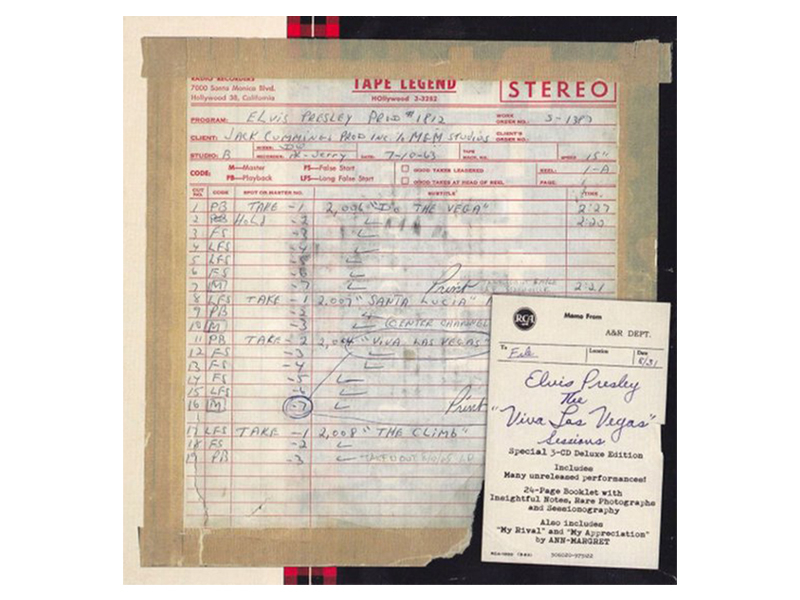 RADIO RECORDERS
7000 Santa Monica Blvd.
Hollywood 38, California
TAPE LEGEND
HOllywood 3-3282
STEREO
PROGRAM: ELVIS PRESLEY PROD #1812
WORK ORDER NO.: S-1383
CLIENT: JACK CUMMINGS PROD INC % M&M STUDIOS
CLIENT'S ORDER NO.:
STUDIO: B
MIXER:
RECORDER: Jerry
DATE: 7-10-63
TAPE MACH. NO.
SPEED 15"
CODE: M—Master FS—False Start
PB—Playback LFS—Long False Start
GOOD TAKES LEADERED
GOOD TAKES AT HEAD OF REEL
REEL: 1-A
PAGE:
CUT NO. CODE SPOT OR MASTER NO. SUBTITLE TIME
1 PB TAKE -1 2,006 THE VEGA" 2:27
2 PB HOLD -2 2:20
3 FS -3
4 LFS -4
5 LFS -5
6 FS -6
7 M -7 Print 2:21
8 LFS TAKE -1 2,007 "SANTA LUCIA"
9 PB -2
10 M -3 CENTER CHANNEL
11 PB TAKE -2 "VIVA LAS VEGAS"
12 FS -3
13 FS -4
14 FS -5
15 LFS -6
16 M -7 Print
17 LFS TAKE -1 2,008 "THE CLIMB"
18 FS -2
19 PB -3
RCA
Memo From
A&R DEPT.
To File
Location
Date 8/31
Elvis Presley
The
"Viva Las Vegas"
Sessions
Special 3-CD Deluxe Edition
Includes
Many unreleased performances!
24-Page Booklet with
Insightful Notes, Rare Photographs
and Sessionography
Also includes
"My Rival" and "My Appreciation"
by ANN-MARGRET
506020-975022